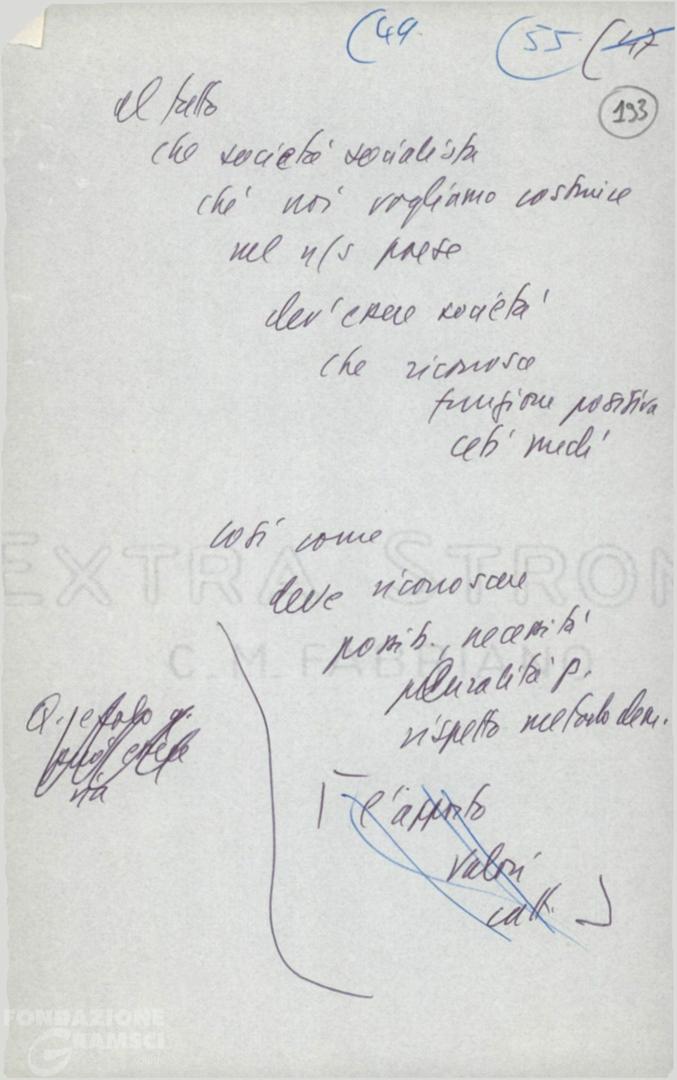 (49 (55 (47
193
al fatto
che società socialista
che noi vogliamo costruire
nel n/s paese
dev'essere società
che riconosce
funzione positiva
ceti medi
così come
deve riconoscere
possib. necessità
pluralità p.
rispetto metodo dem.
l'apporto
valori
catt.
EXTRA STRON
C. M. FABRIANO
FONDAZIONE
GRAMSCI